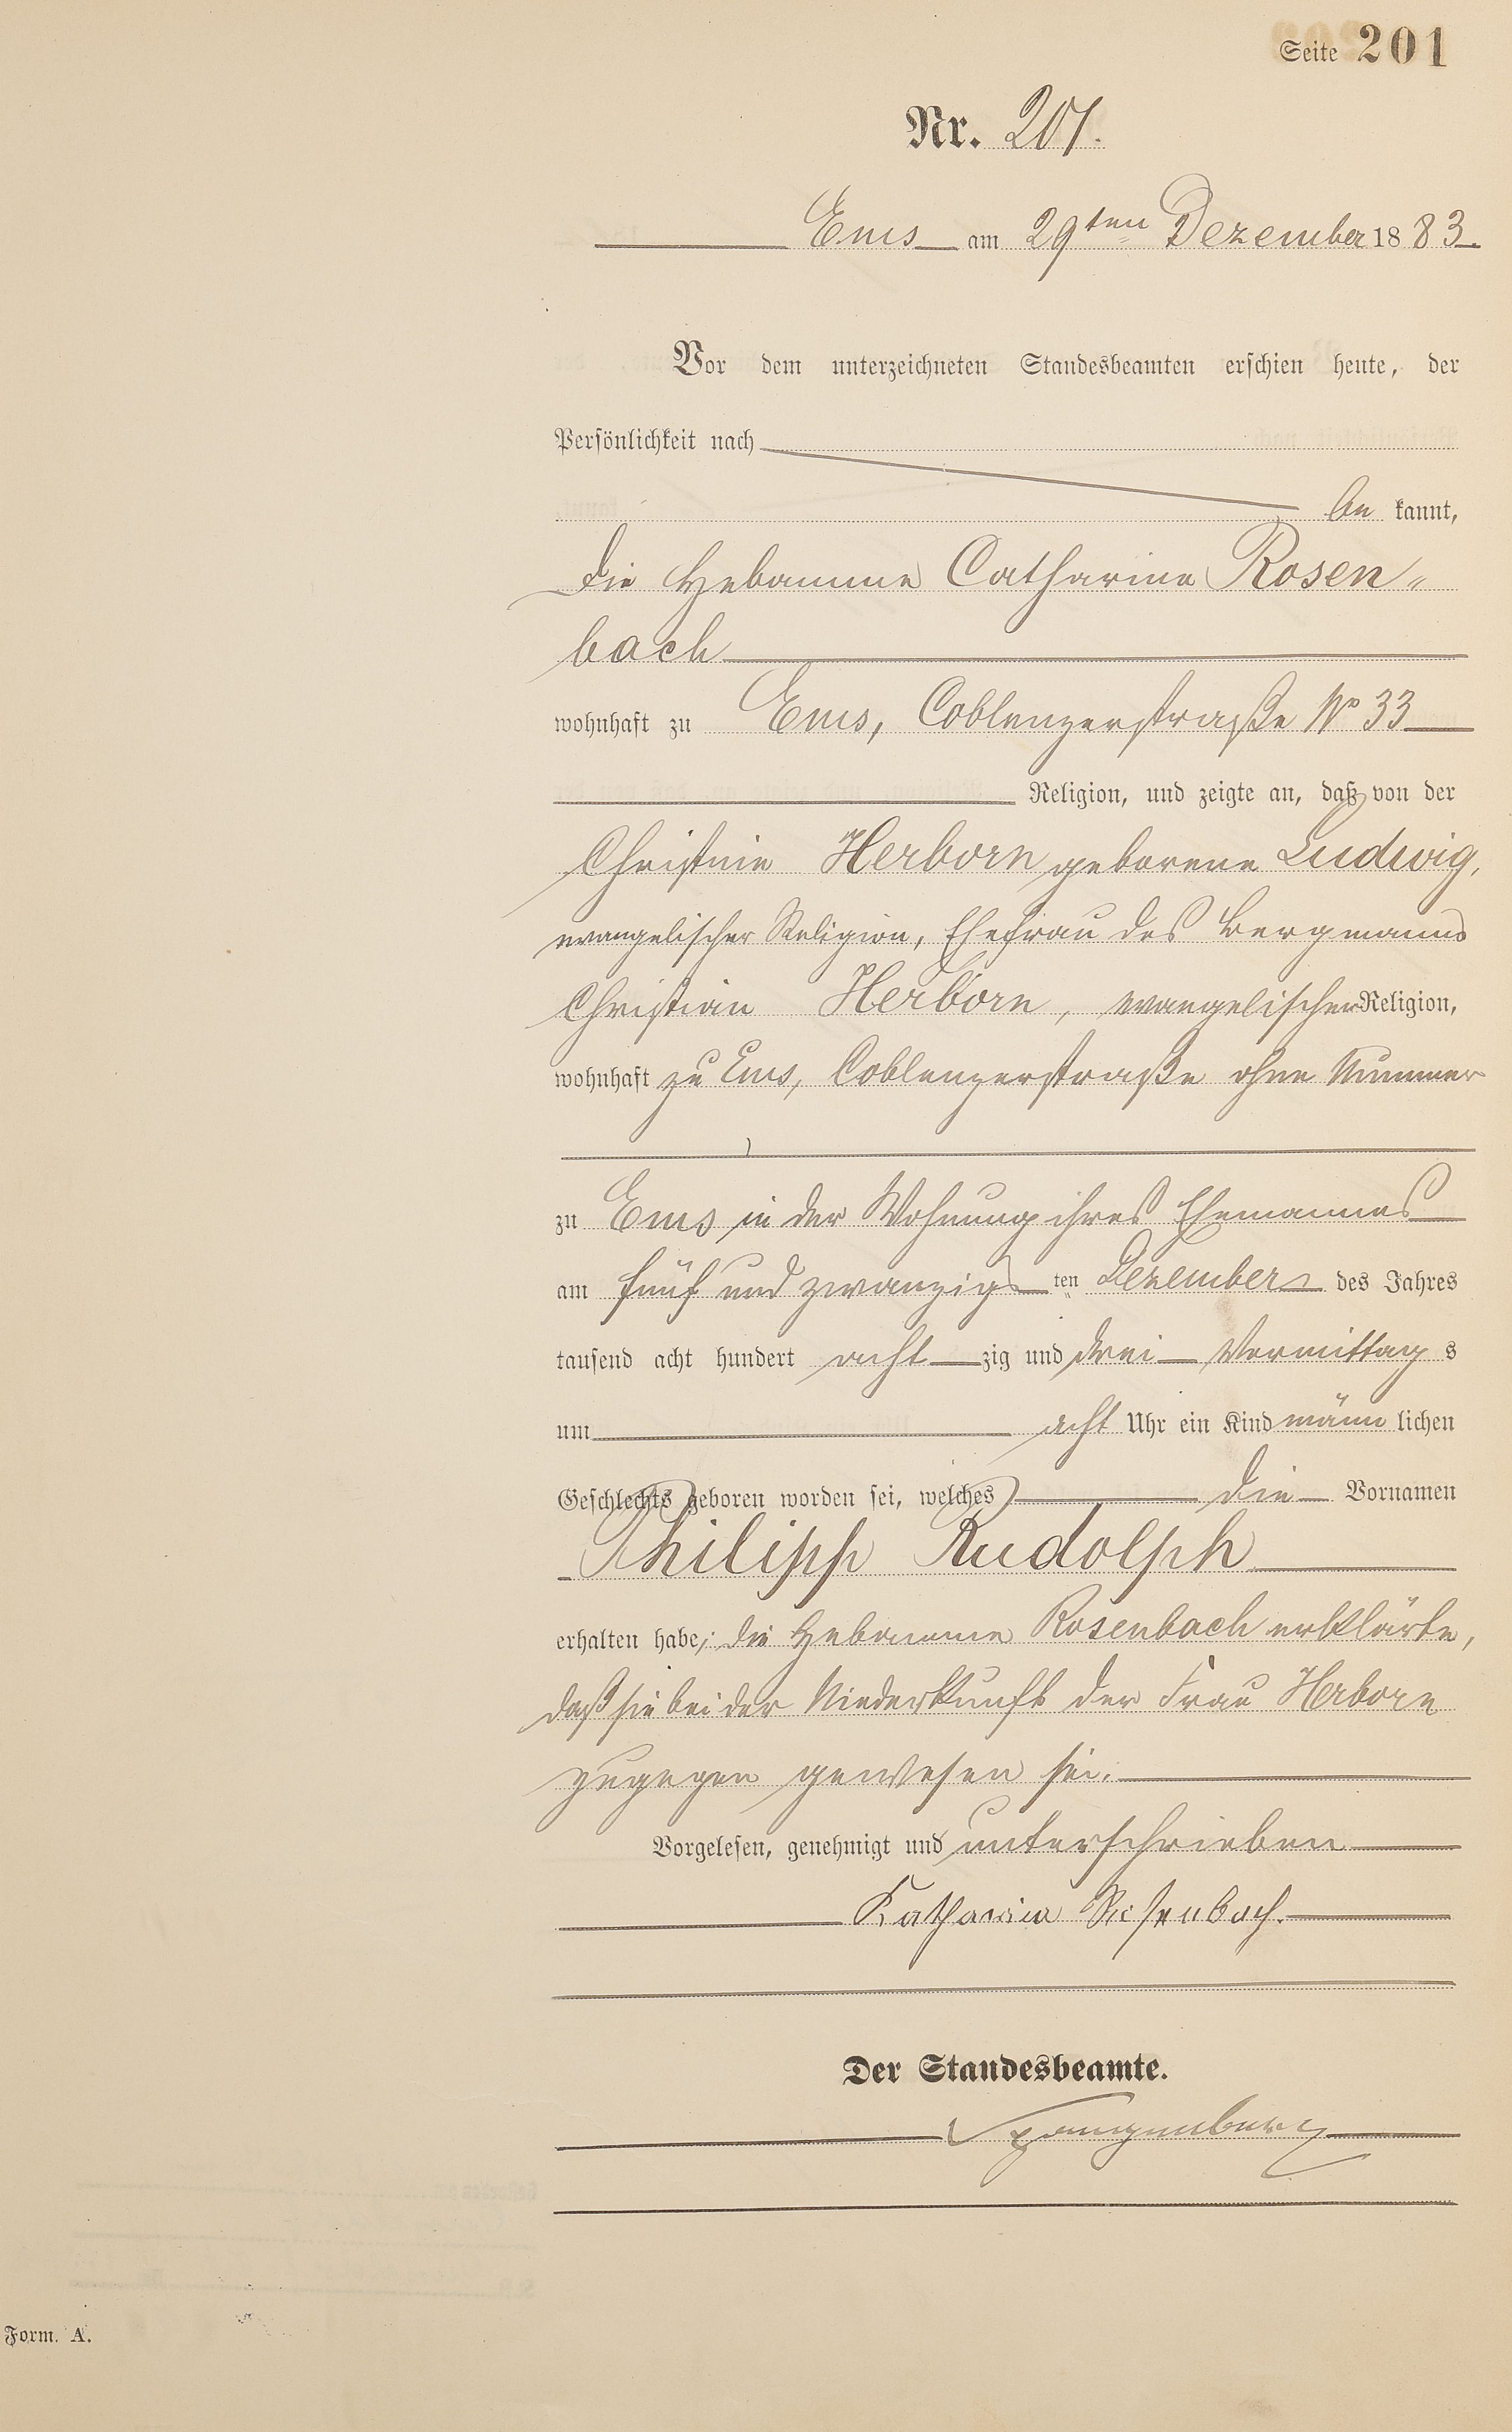 Seite 201
Nr. 201.
Ems am 29ten Dezember 1883.
Vor dem unterzeichneten Standesbeamten erschien heute, der
Persönlichkeit nach
be kannt,
die Hebamme Catharina Rosen-
bach
wohnhaft zu Ems, Coblenzerstraße No 33
Religion, und zeigte an, daß von der
Christine Herborn geborene Ludwig,
evangelischer Religion, Ehefrau des Bergmanns
Christian Herborn, evangelischer Religion,
wohnhaft zu Ems, Coblenzerstraße ohne Nummer
zu Ems in der Wohnung ihres Ehemannes
am fünf und zwanzigsten Dezember des Jahres
tausend acht hundert acht zig und drei Vormittag s
um acht Uhr ein Kind männ lichen
Geschlechts geboren worden sei, welches die Vornamen
Philipp Rudolph
erhalten habe; die Hebamme Rosenbach erklärte,
daß sie bei der Niederkunft der Frau Herborn
zugegen gewesen sei.
Vorgelesen, genehmigt und unterschrieben
Katharina Rosenbach.
Der Standesbeamte.
Spangenberg
Form. A.